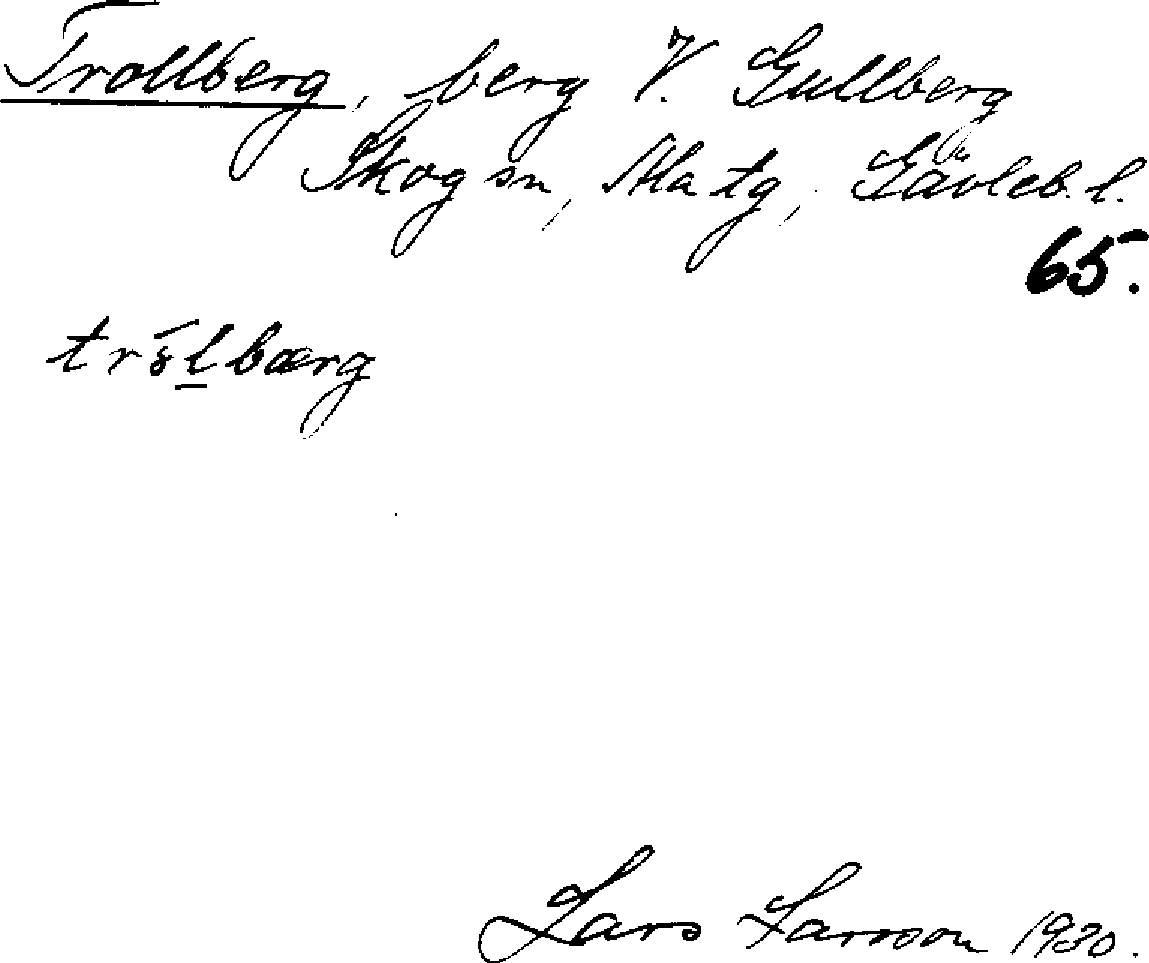 Trollberg, berg V. Gullberg
Skog sn, Ala tg, Gävleb. l.
65.
trs̄lbærg
Lars Larsson 1930.